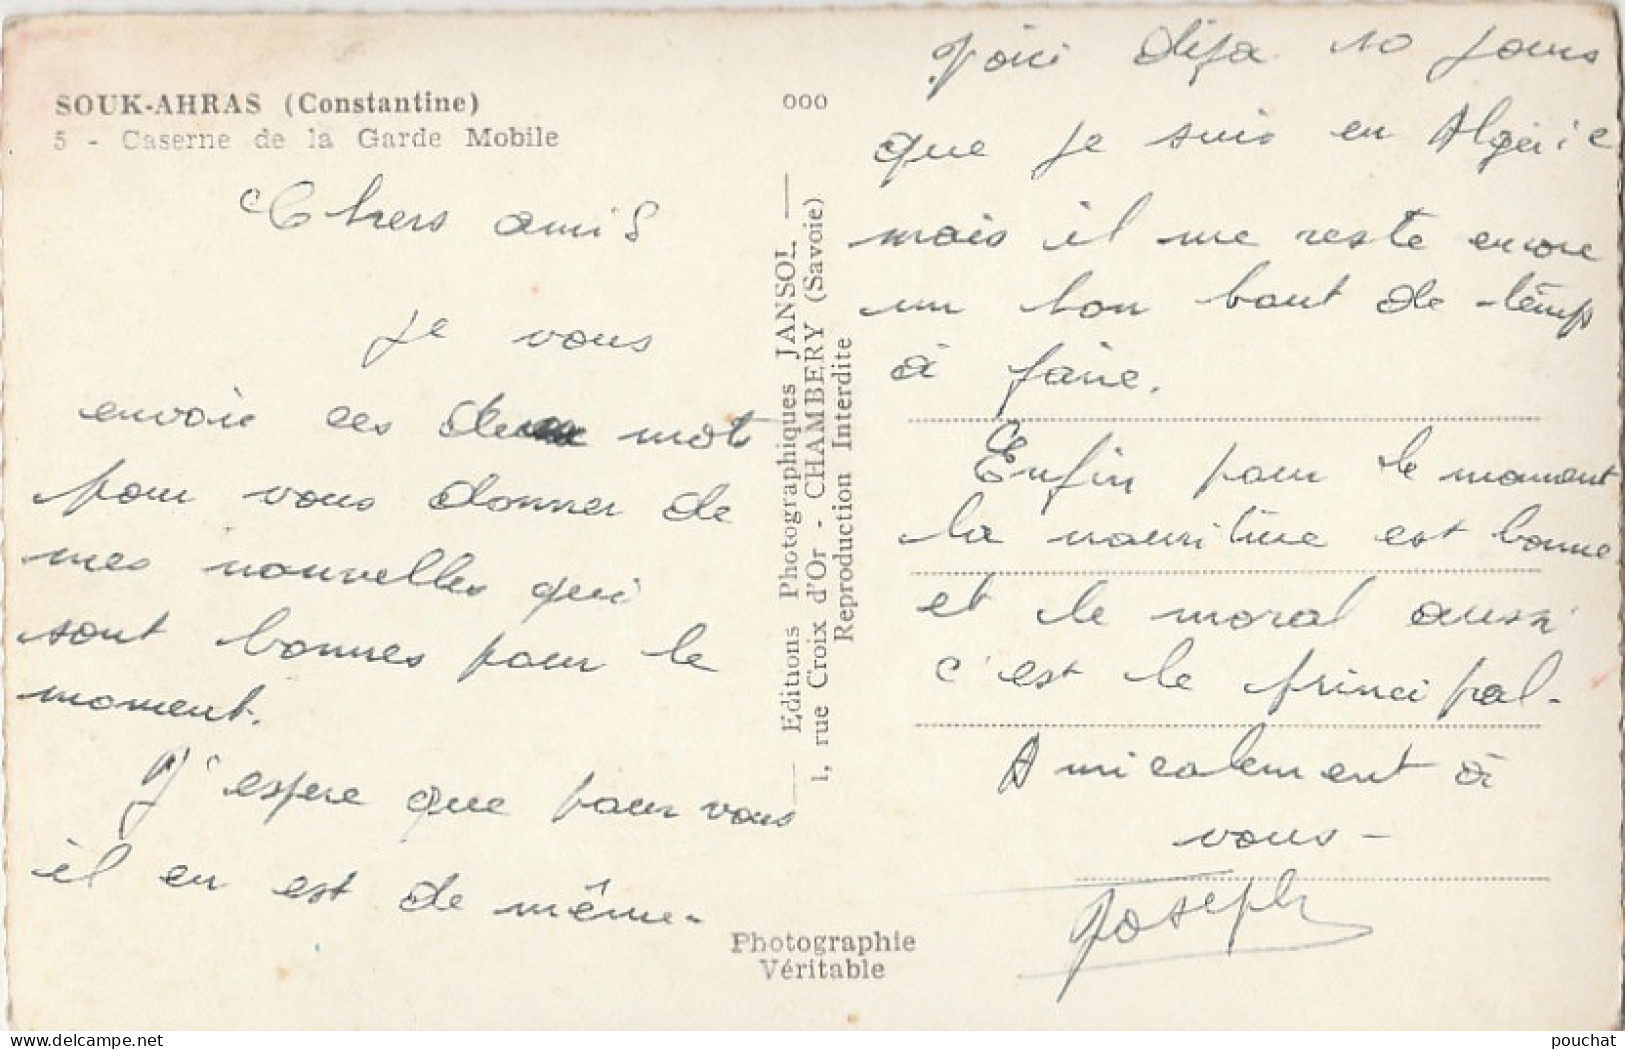 SOUK-AHRAS (Constantine)
5 - Caserne de la Garde Mobile
Chers amis
je vous
envoie ces deux mots
pour vous donner de
mes nouvelles qui
sont bonnes pour le
moment.
J'espere que pour vous
il en est de même.
000
Editions Photographiques JANSOL
1, rue Croix d'Or - CHAMBERY (Savoie)
Reproduction Interdite
Photographie
Véritable
Voici déja 10 jours
que je suis en Algérie
mais il me reste encore
un bon bout de temps
à faire.
Enfin pour le moment
la nourriture est bonne
et le moral aussi
c'est le principal.
Amicalement à
vous -
Joseph
pouchat
www.delcampe.net